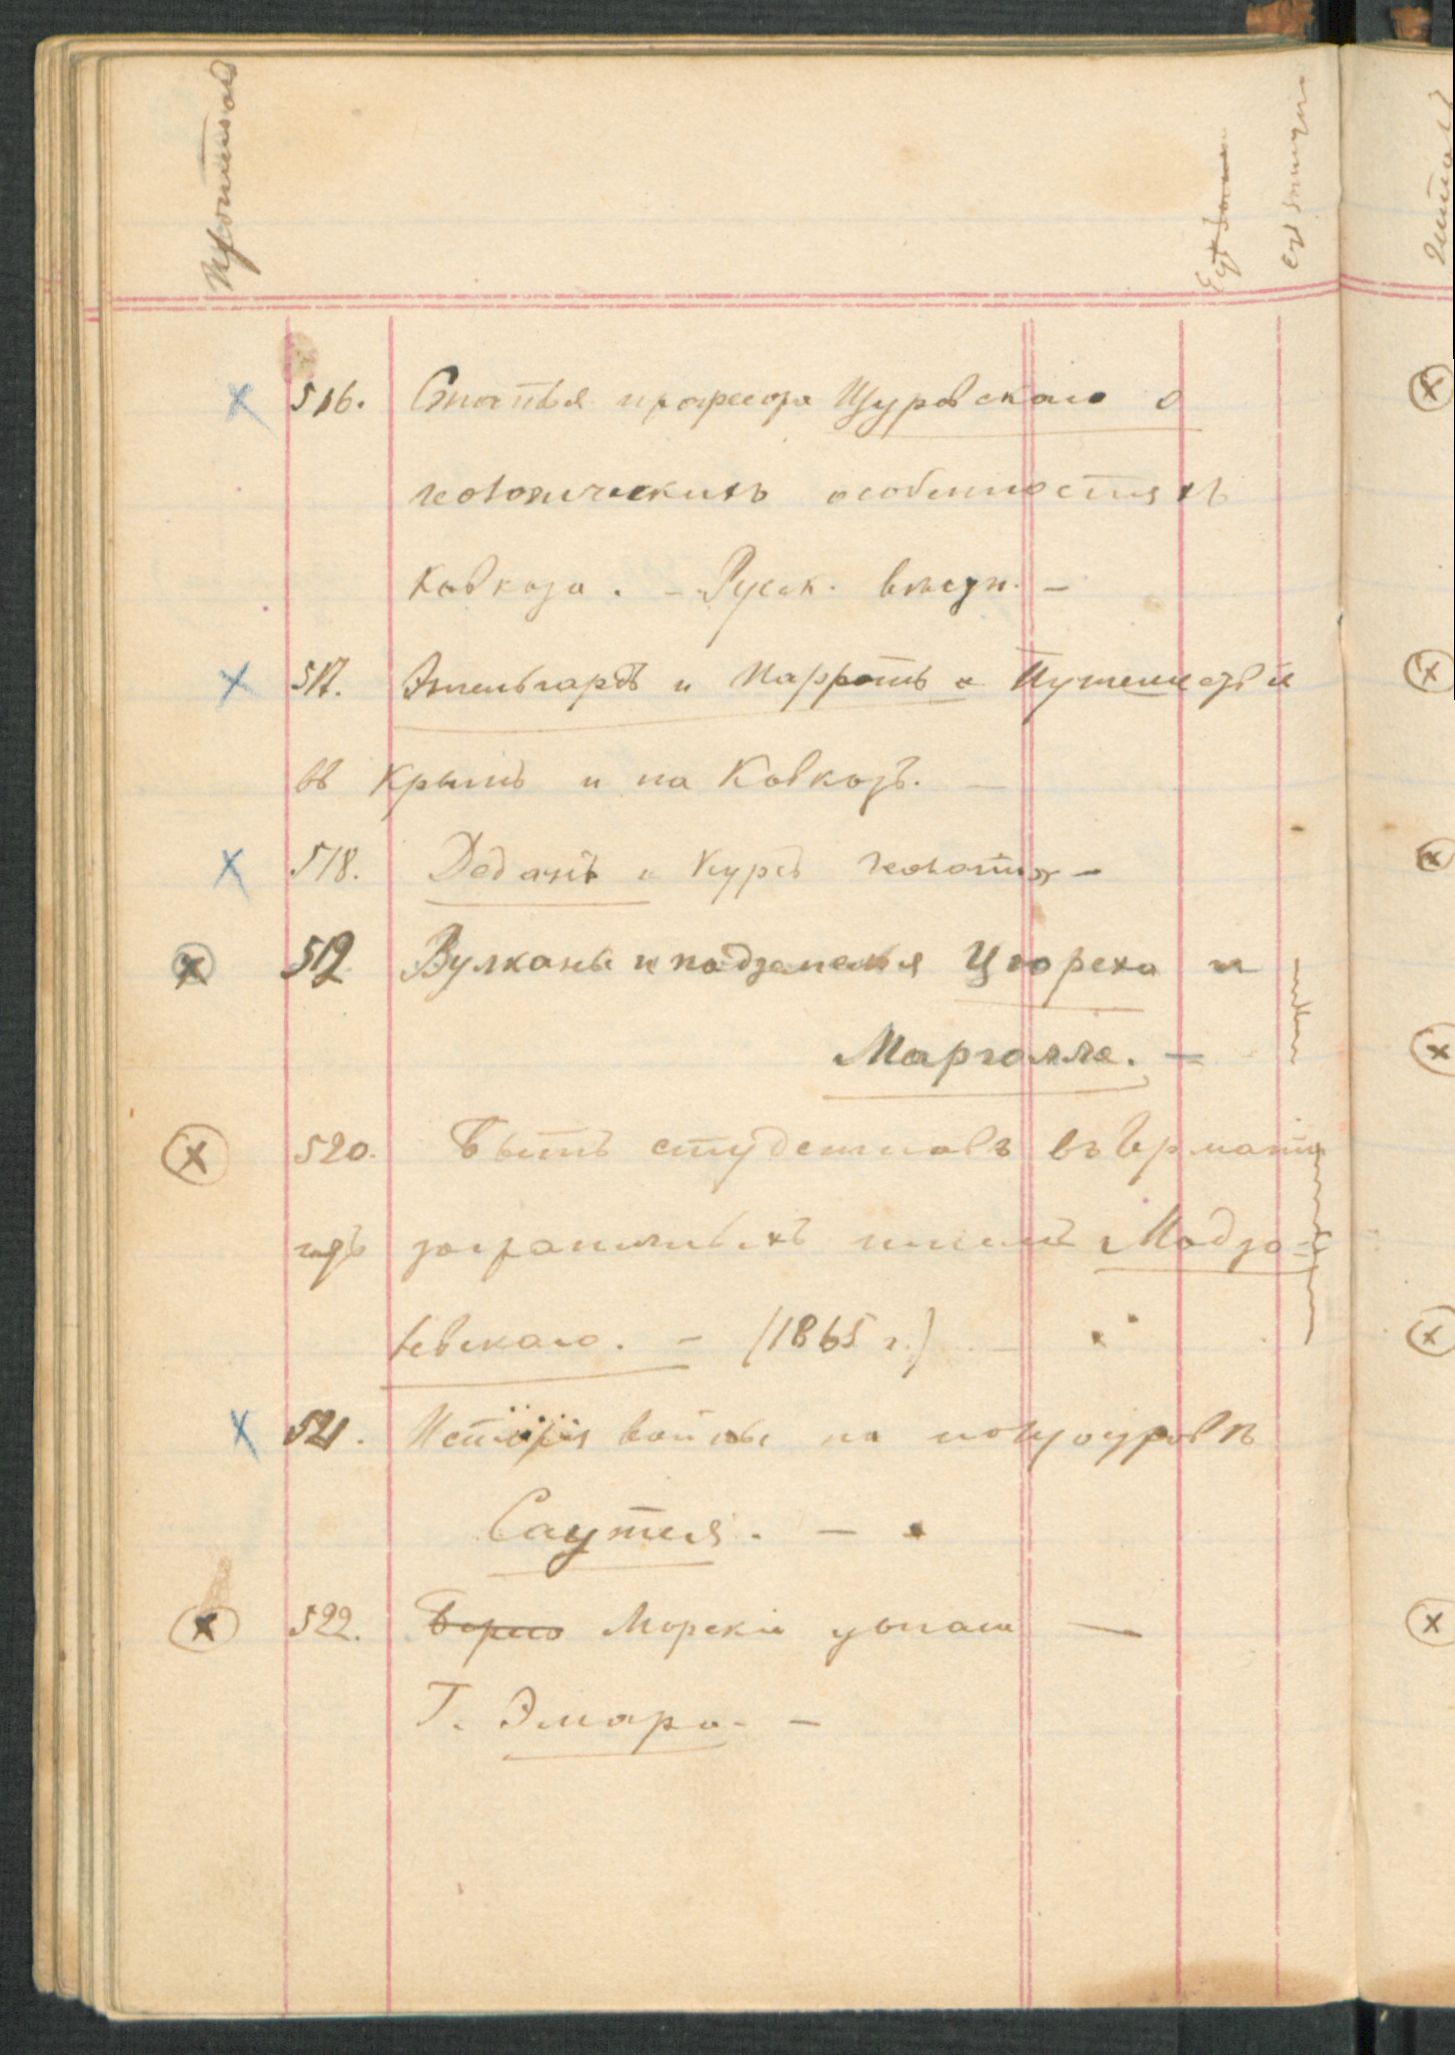 Прочиталъ
516. Статья професора Щуровскаго о
геологическихъ особенностяхъ
Кавказа. – Русск. вѣстн. –
517. Энгельгардъ и Парротъ „ Путешествіе
въ Крымъ и на Кавказъ.
518. Дедакъ „ Курсъ геологіи –
519 Вулканы и подземелья Цюрехо и
Марголле. –
520. Бытъ студентовъ въ Германіи
заграничныхъ писемъ Модзо-
левскаго. – (1865 г.)
521. Исторія войны на полуостровѣ
Саутея. –
522. Морскіе цыгане —
Г. Эмара. –